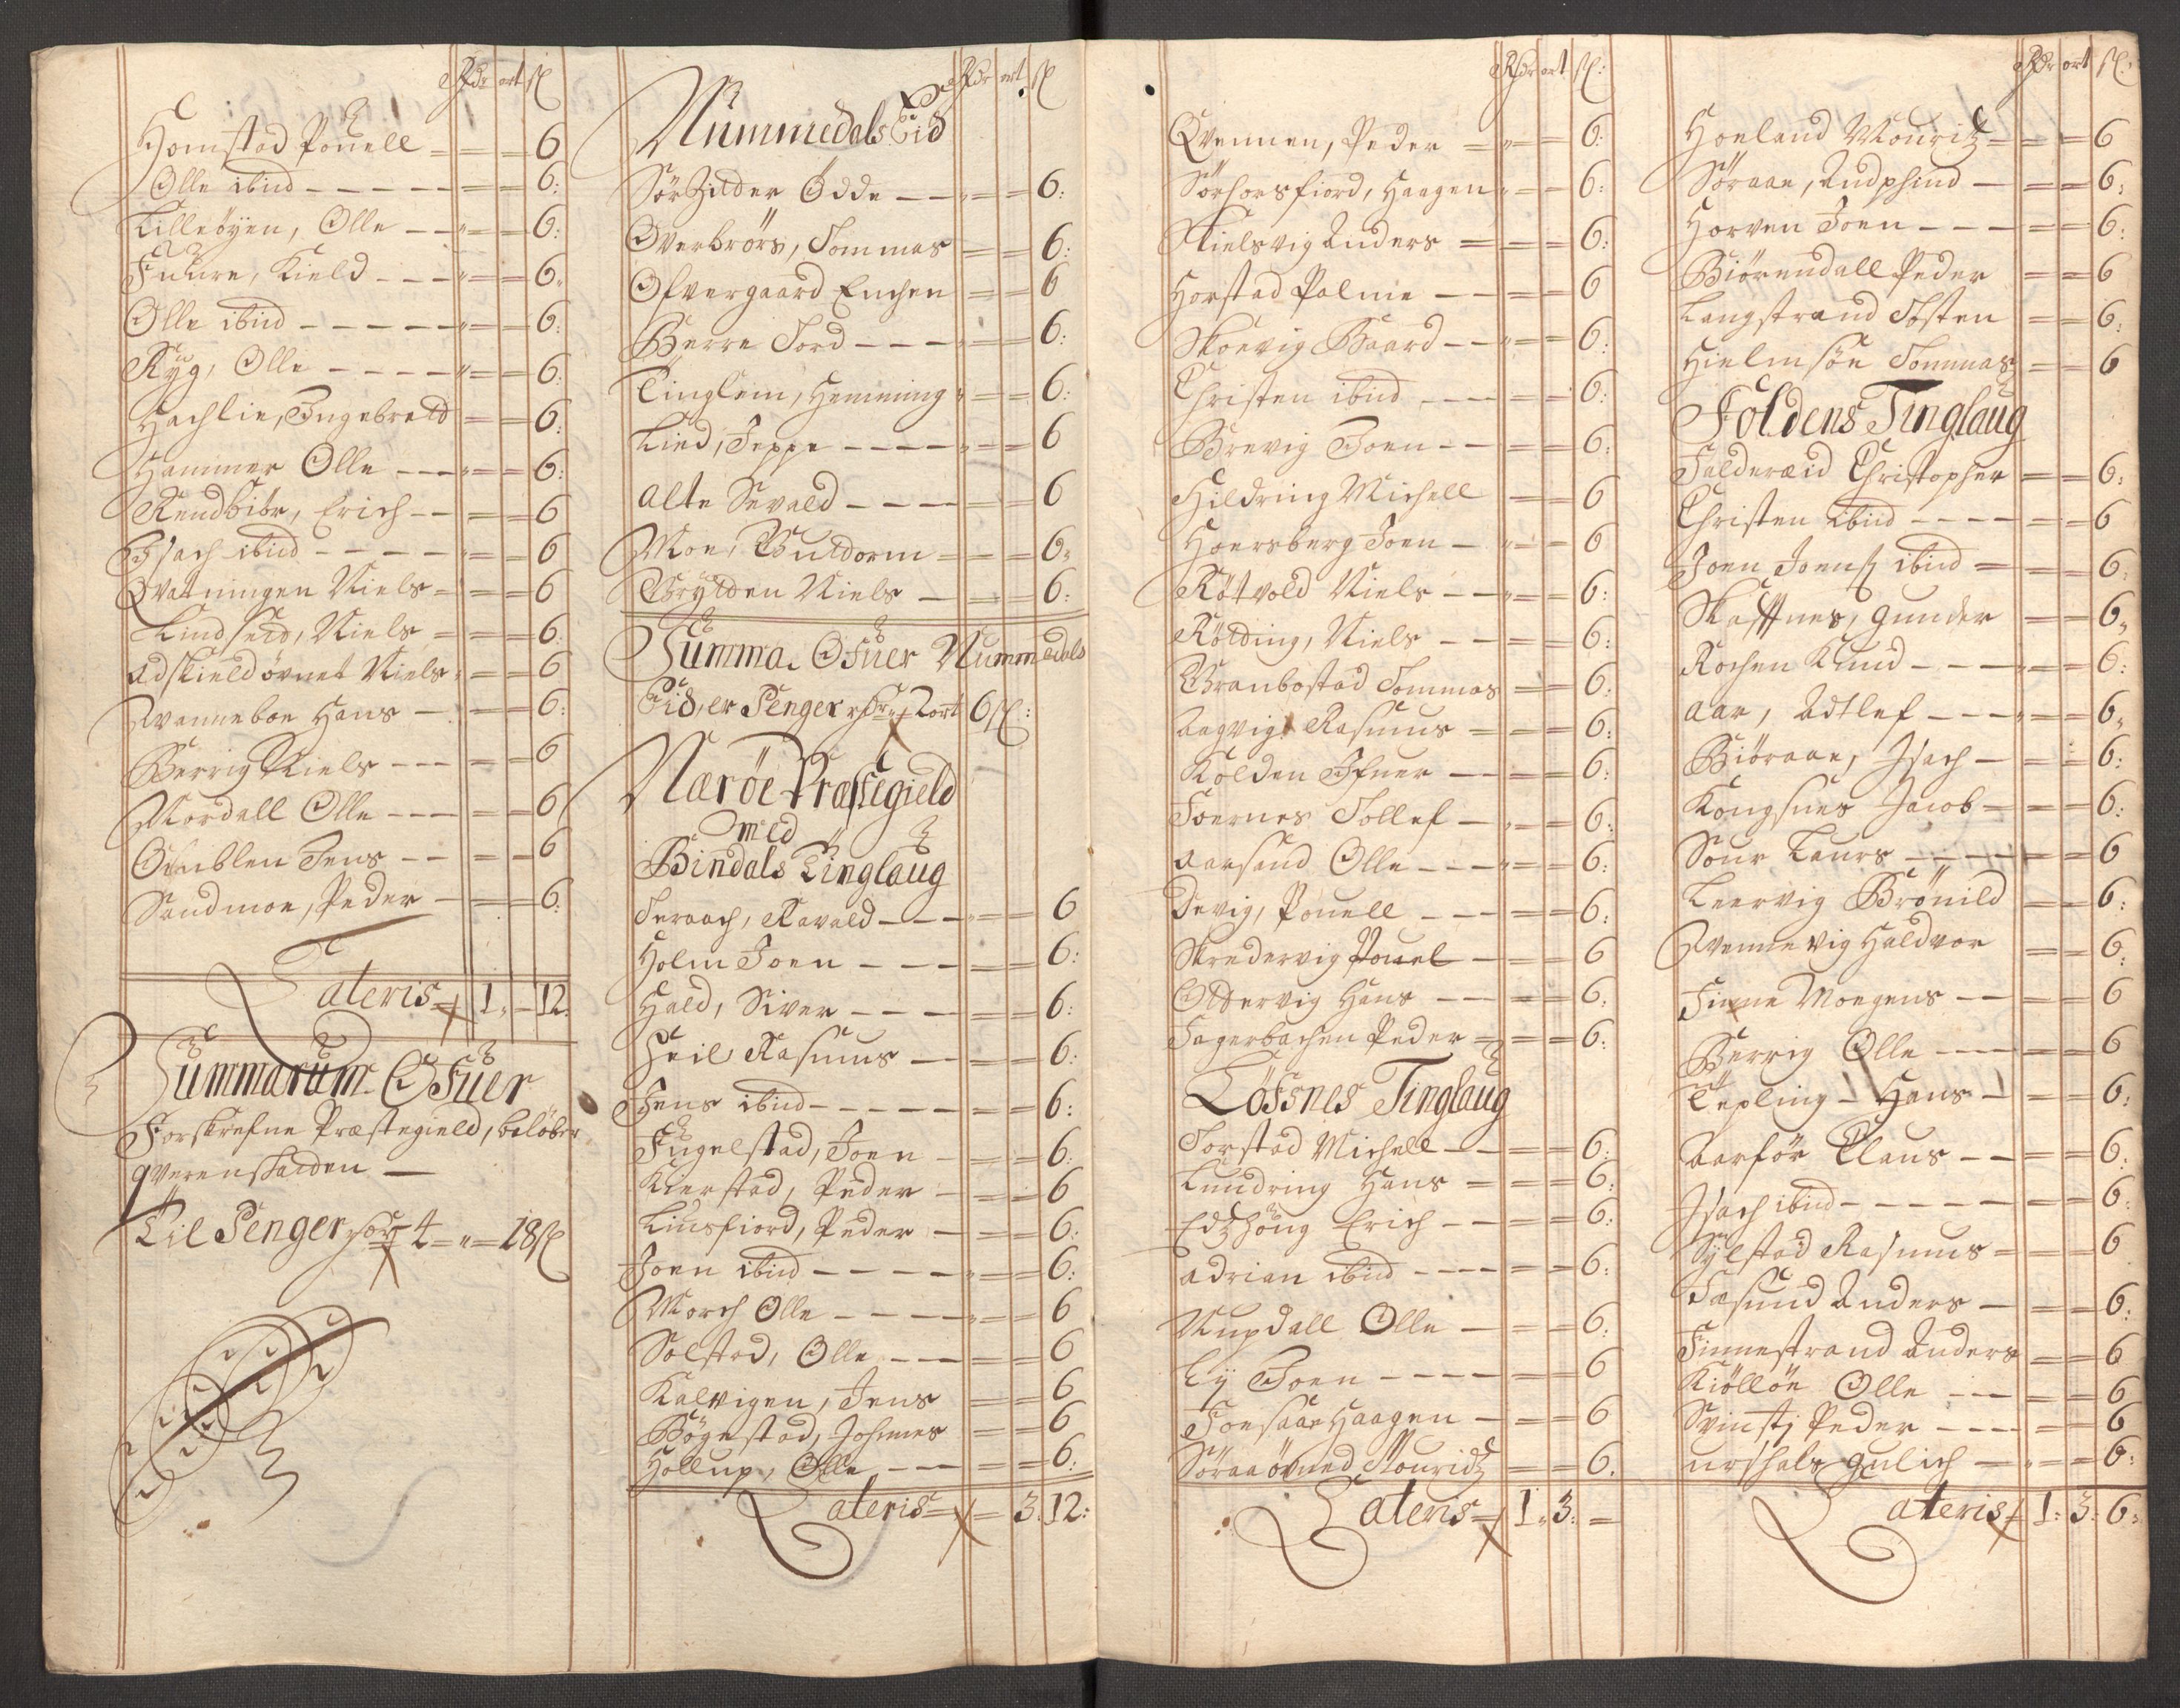 Rdr ort sl
Homstad Pouell - - - 6
Olle ibid - - - - - 6:
Lilleöÿen, Olle - - - 6:
Fuure, Kield - - - 6.
Olle ibid - - - - - 6:
Ryg, Olle - - - - 6:
Hachlie, Ingebretd 6:
Hammer Olle - - - 6:
Rendbibr, Erich - - 6
Isach ibid - - - - 6
Qvatningen Niels - 6
Lindseid, Niels - 6:
Adskieldövnet Niels 6
Qvanneboe Hans - 6:
Berrig Niels - - - 6
Mordall Olle - - - 6
Jens - - - 6
Sandmoe, Peder - 6:
Lateris 1 - 12:
Summarum Ofuer
Forskrefne Præstegield, belöber
qverenskatden -
Til Penger rdr 4 - " - 18 sl
Rdr ort sl
Nummedals Eid
Sör Odde - - - 6:
Overbrörs, Tommas 6:
Ofvergaard Enchen 6
Berre Tord - - - 6:
Tinglem, Hemming 6:
Lied, Jeppe - - - - 6
Alte Sevald - - - - 6
Moe, Guldorm - 6.
Grÿtden Niels - 6:
Summa. Ofuer Nummedals
Eid, er Penger rdr 2 ort 6 sl:
Næröe Præstegield
med
Bindals Tinglaug
Teraach, Ravald - - - 6
Holm Joen - - - 6:
Hald, Siver - - - 6:
Heil Rasmus - - 6:
Jens ibid - - - - - 6:
Fugelstad, Joen - 6:
Kierstad, Peder - 6
Liusfiord, Peder - 6:
Joen ibid - - - - 6:
Morch Olle - - - - 6
Solstad, Olle - - - 6
Kalvigen, Jens 6
Bögestad, Johnnes 6
Hollup, Olle - - - 6:
Lateris 3. 12:
Rdr ort sl:
Qvennen, Peder 6:
Sörhorsfiord, Haagen 6:
Skielsvig Anders 6:
Horstad Palme - - 6
Skoevig Baard - - 6:
Christen ibid - - - 6:
Brevig Joen - - 6:
Hildring Michell 6
Hoersberg Joen - 6
Rötvold Niels - - 6:
Rötding, Niels - - 6:
Branbostad Tommas 6:
Aagvig Rasmus - 6:
Kolden Ifuer - - 6:
Foernes Tollef - 6:
Aarsand Olle - - - 6:
Devig, Pouell - - - 6:
Skredervig Pouel - 6
Ottervig Hans - - 6.
Fagerbachen Peder 6:
Löfsnes Tinglaug
Torstad Michell - - 6:
Lundring Hans - 6:
Erich - - 6:
Adrian ibid - - - - 6:
Nupdall Olle - 6:
Ey Joen - - - - 6
Foesaae Haagen - 6
Söraaövned Mouridtz 6.
Lateris 1 " 3: -
Rdr ort sl:
Hoeland Mouritz - 6
Söraae, Andphind - 6:
Horven Joen - - - 6:
Biörendall Peder 6
Langstrand Tosten 6:
Hielmsöe Tommas 6
Foldens Tinglaug
Faldereid Christopher 6:
Christen ibid - - - - 6
Joen Joens ibid 6:
Skaffnes, Gunder 6.
Rochen Knud - - - 6:
Aar, Adtlef - - - 6.
Biöraae, Isach - 6:
Kongsnes Jacob 6:
Sour Laurs - - - - 6
Leervig Brönild 6:
Qvennevig Haldvor 6:
Finne Moegens - - 6
Berrig Olle - - - 6
Tepling - Hans - 6:
Aarför Claus - - 6:
Isach ibid - - - - - 6:
Sÿlstad Rasmus - 6
Fæsund Anders - 6:
Finnestrand Anders 6
Kiöllöe Olle - - - 6
Svinstj Peder - - - - 6
Urshals Gulich - - 6:
Lateris 1: 3: 6: